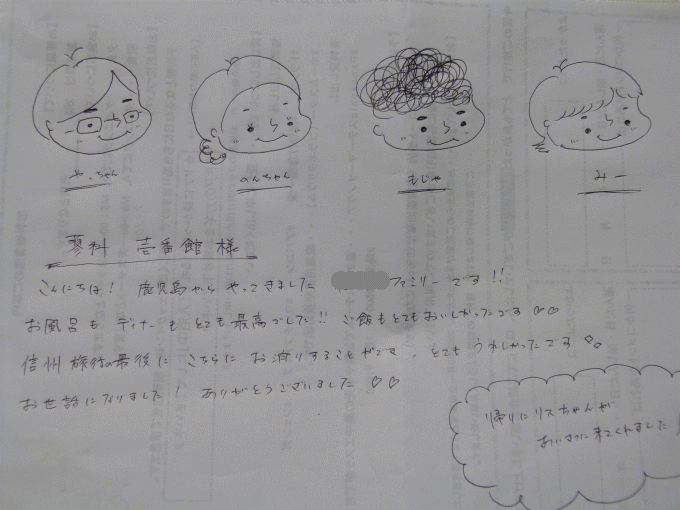 やっちゃん のんちゃん もじゃ みー
蓼科 壱番館 様
こんにちは! 鹿児島から やってきました ファミリー です!!
お風呂も ディナーも とても最高でした!! ご飯もとてもおいしかったです ♡♡
信州 旅行の最後に こちらに お泊りすることができ、とても うれしかったです ♡♡
お世話になりました! ありがとうございました ♡♡
帰りにリスちゃんが
あいさつに来てくれました